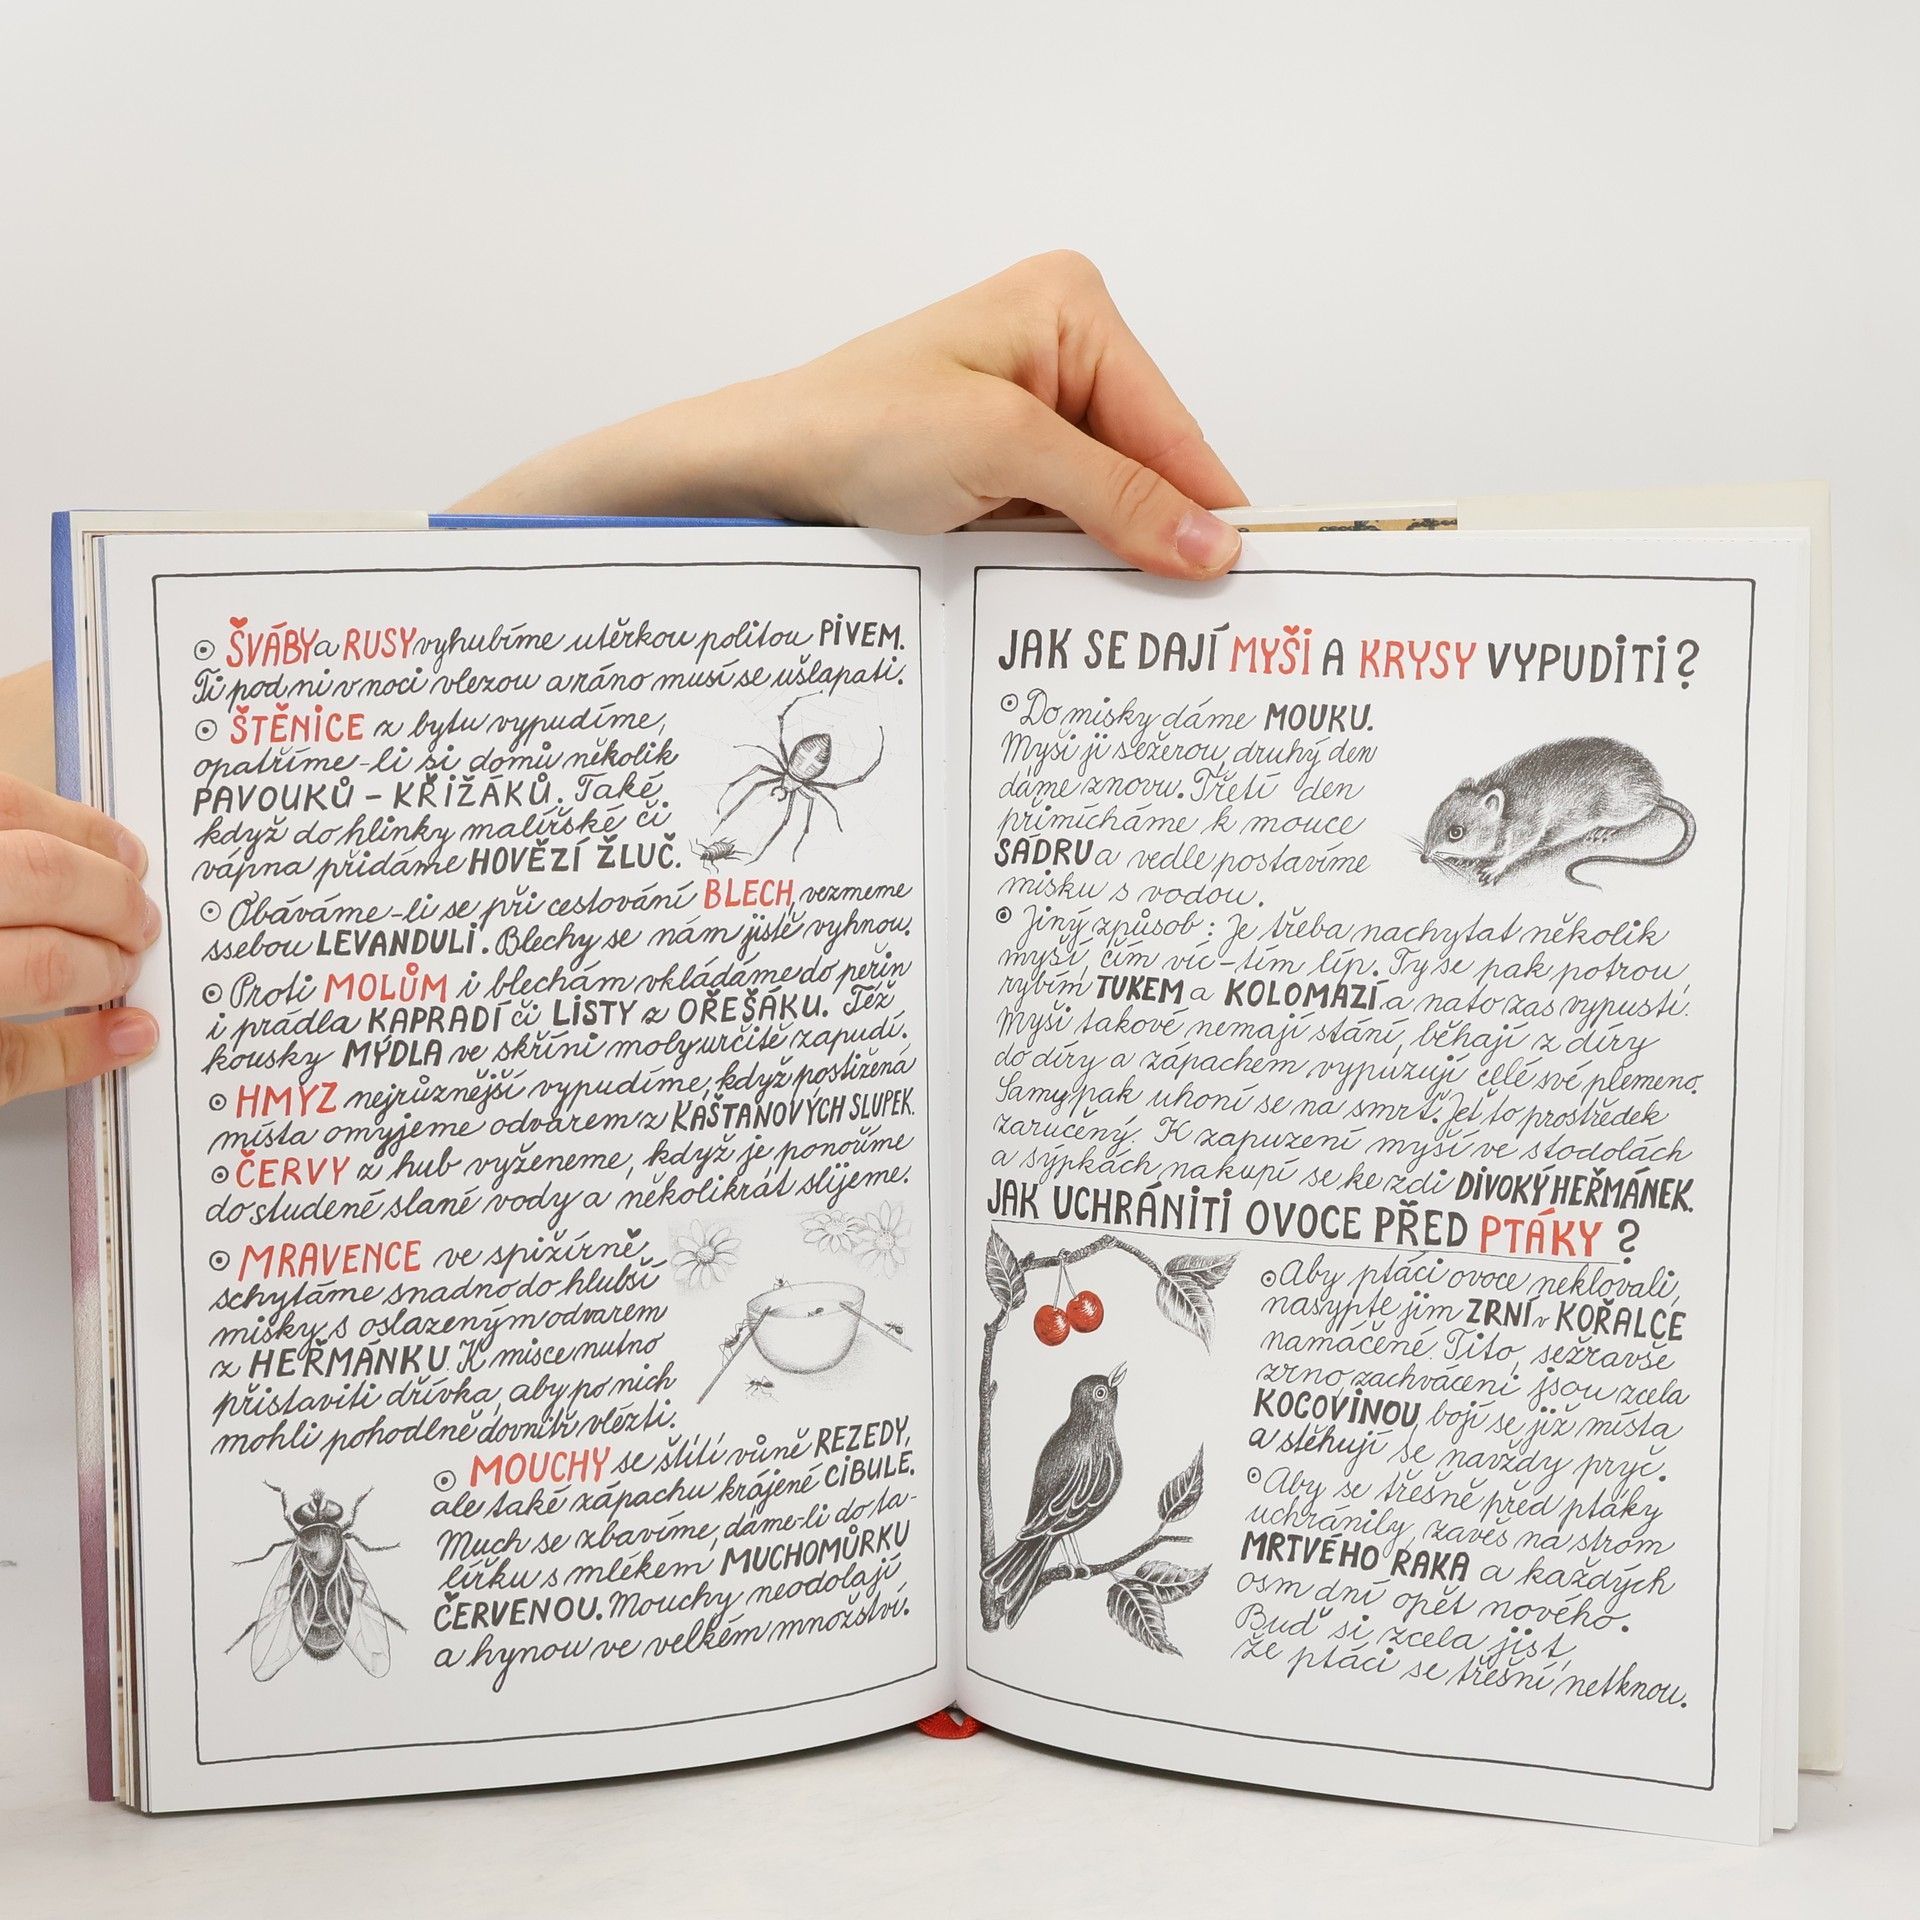 ⊙ ŠVÁBY a RUSY vyhubíme utěrkou politou PIVEM.
Ti pod ni v noci vlezou a ráno musí se ušlapati.
⊙ ŠTĚNICE z bytu vypudíme,
opatříme-li si domů několik
PAVOUKŮ - KŘIŽÁKŮ. Také,
když do hlinky malířské či
vápna přidáme HOVĚZÍ ŽLUČ.
⊙ Obáváme-li se při cestování BLECH, vezmeme
ssebou LEVANDULI. Blechy se nám jistě vyhnou.
⊙ Proti MOLŮM i blechám vkládáme do peřin
i prádla KAPRADÍ či LISTY z OŘEŠÁKU. Též
kousky MÝDLA ve skříni moly určitě zapudí.
⊙ HMYZ nejrůznější vypudíme, když postižená
místa omyjeme odvarem z KAŠTANOVÝCH SLUPEK.
⊙ ČERVY z hub vyženeme, když je ponoříme
do studené slané vody a několikrát slijeme.
⊙ MRAVENCE ve spižírně,
schytáme snadno do hlubší
misky s oslazeným odvarem
z HEŘMÁNKU. K misce nutno
přistaviti dřívka, aby po nich
mohli pohodlně dovnitř vlézti.
⊙ MOUCHY se štítí vůně REZEDY,
ale také zápachu krájené CIBULE.
Much se zbavíme, dáme-li do ta-
lířku s mlékem MUCHOMŮRKU
ČERVENOU. Mouchy neodolají
a hynou ve velkém množství.
JAK SE DAJÍ MYŠI A KRYSY VYPUDITI?
⊙ Do misky dáme MOUKU.
Myši ji sežerou, druhý den
dáme znovu. Třetí den
přimícháme k mouce
SÁDRU a vedle postavíme
misku s vodou.
⊙ Jiný způsob: Je třeba nachytat několik
myší, čím víc-tím líp. Ty se pak potrou
rybím TUKEM a KOLOMAZÍ a nato zas vypustí.
Myši takové nemají stání, běhají z díry
do díry a zápachem vypuzují celé své plemeno.
Samy pak uhoní se na smrt. Jet to prostředek
zaručený. K zapuzení myší ve stodolách
a sýpkách nakupí se ke zdi DIVOKÝ HEŘMÁNEK.
JAK UCHRÁNITI OVOCE PŘED PTÁKY?
⊙ Aby ptáci ovoce neklovali,
nasypte jim ZRNÍ v KOŘALCE
namáčené. Tito, sežravše
zrno, zachváceni jsou zcela
KOCOVINOU, bojí se již místa
a stěhují se navždy pryč.
⊙ Aby se třešně před ptáky
uchránily, zavěs na strom
MRTVÉHO RAKA a každých
osm dní opět nového.
Buď si zcela jist,
že ptáci se třešní netknou.